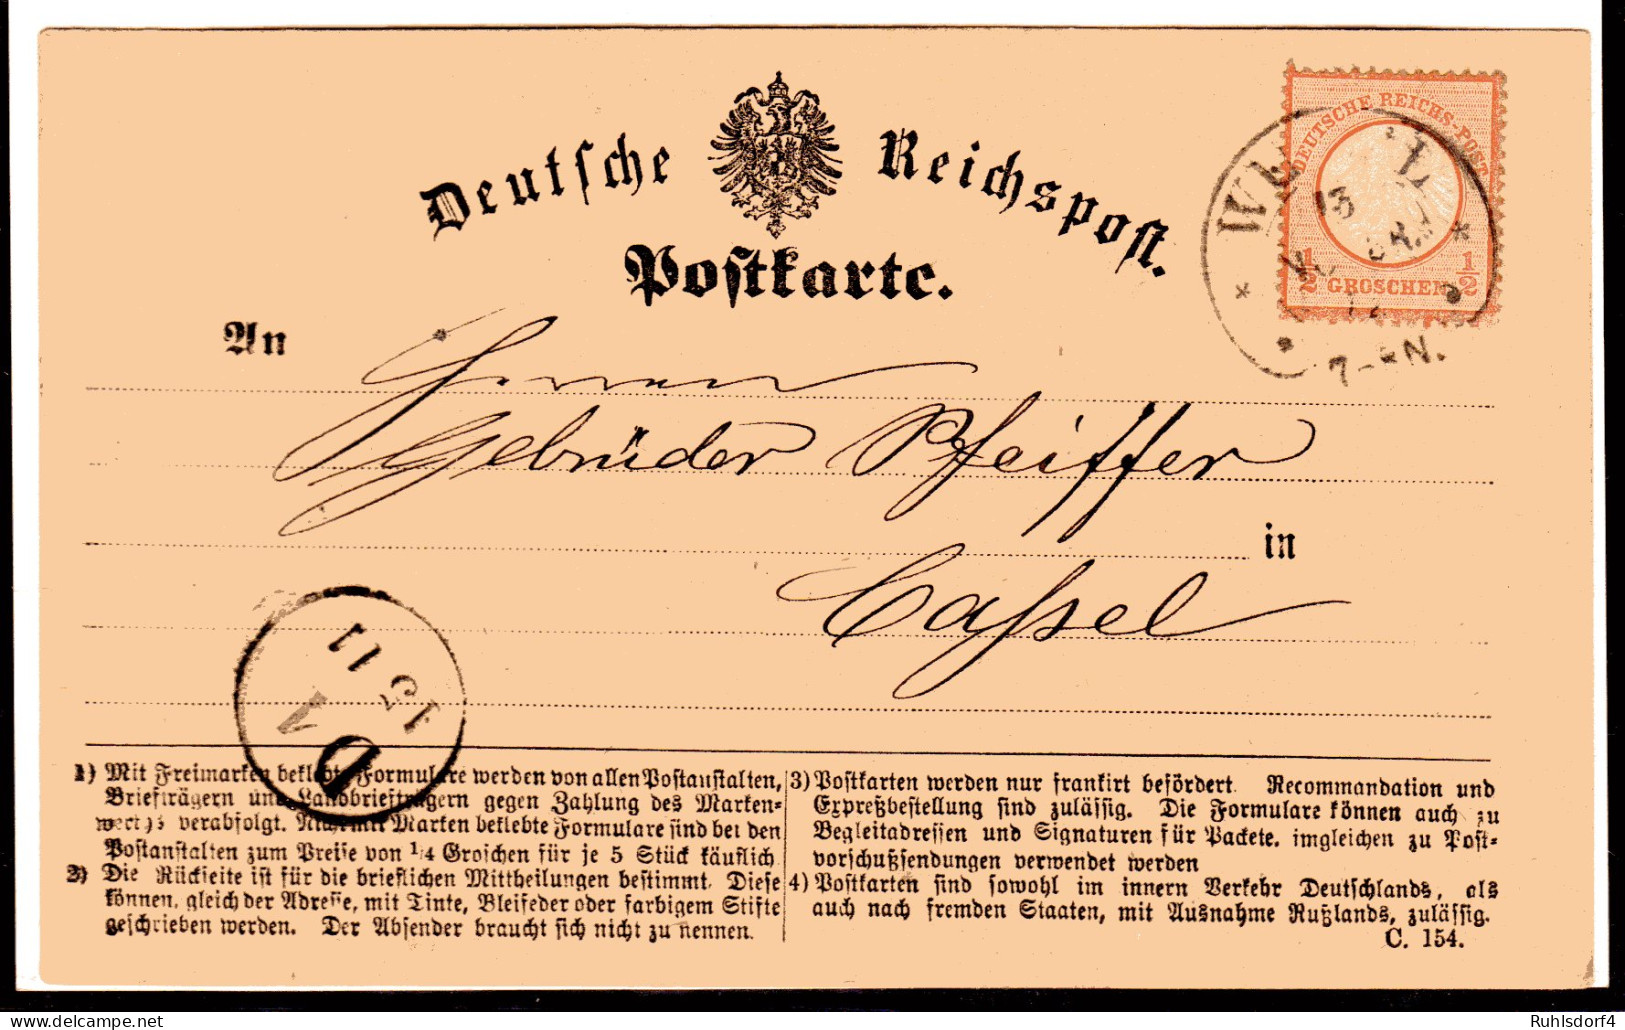 Deutsche Reichspost.
Postkarte.
DEUTSCHE REICHS-POST
1/2 GROSCHEN 1/2
13
7-8N.
An
Herren
Gebrüder Pfeiffer
in
Cassel
15 11
1) Mit Freimarken beklebte Formulare werden von allen Postanstalten,
Briefträgern und Landbriefträgern gegen Zahlung des Marken-
werths verabfolgt. Nicht mit Marken beklebte Formulare sind bei den
Postanstalten zum Preise von 1/4 Groschen für je 5 Stück käuflich
2) Die Rückseite ist für die brieflichen Mittheilungen bestimmt. Diese
können, gleich der Adresse, mit Tinte, Bleifeder oder farbigem Stifte
geschrieben werden. Der Absender braucht sich nicht zu nennen.
3) Postkarten werden nur frankirt befördert. Recommandation und
Expreßbestellung sind zulässig. Die Formulare können auch zu
Begleitadressen und Signaturen für Packete, imgleichen zu Post-
vorschußsendungen verwendet werden
4) Postkarten sind sowohl im innern Verkehr Deutschlands, als
auch nach fremden Staaten, mit Ausnahme Rußlands, zulässig.
C. 154.
Ruhlsdorf4